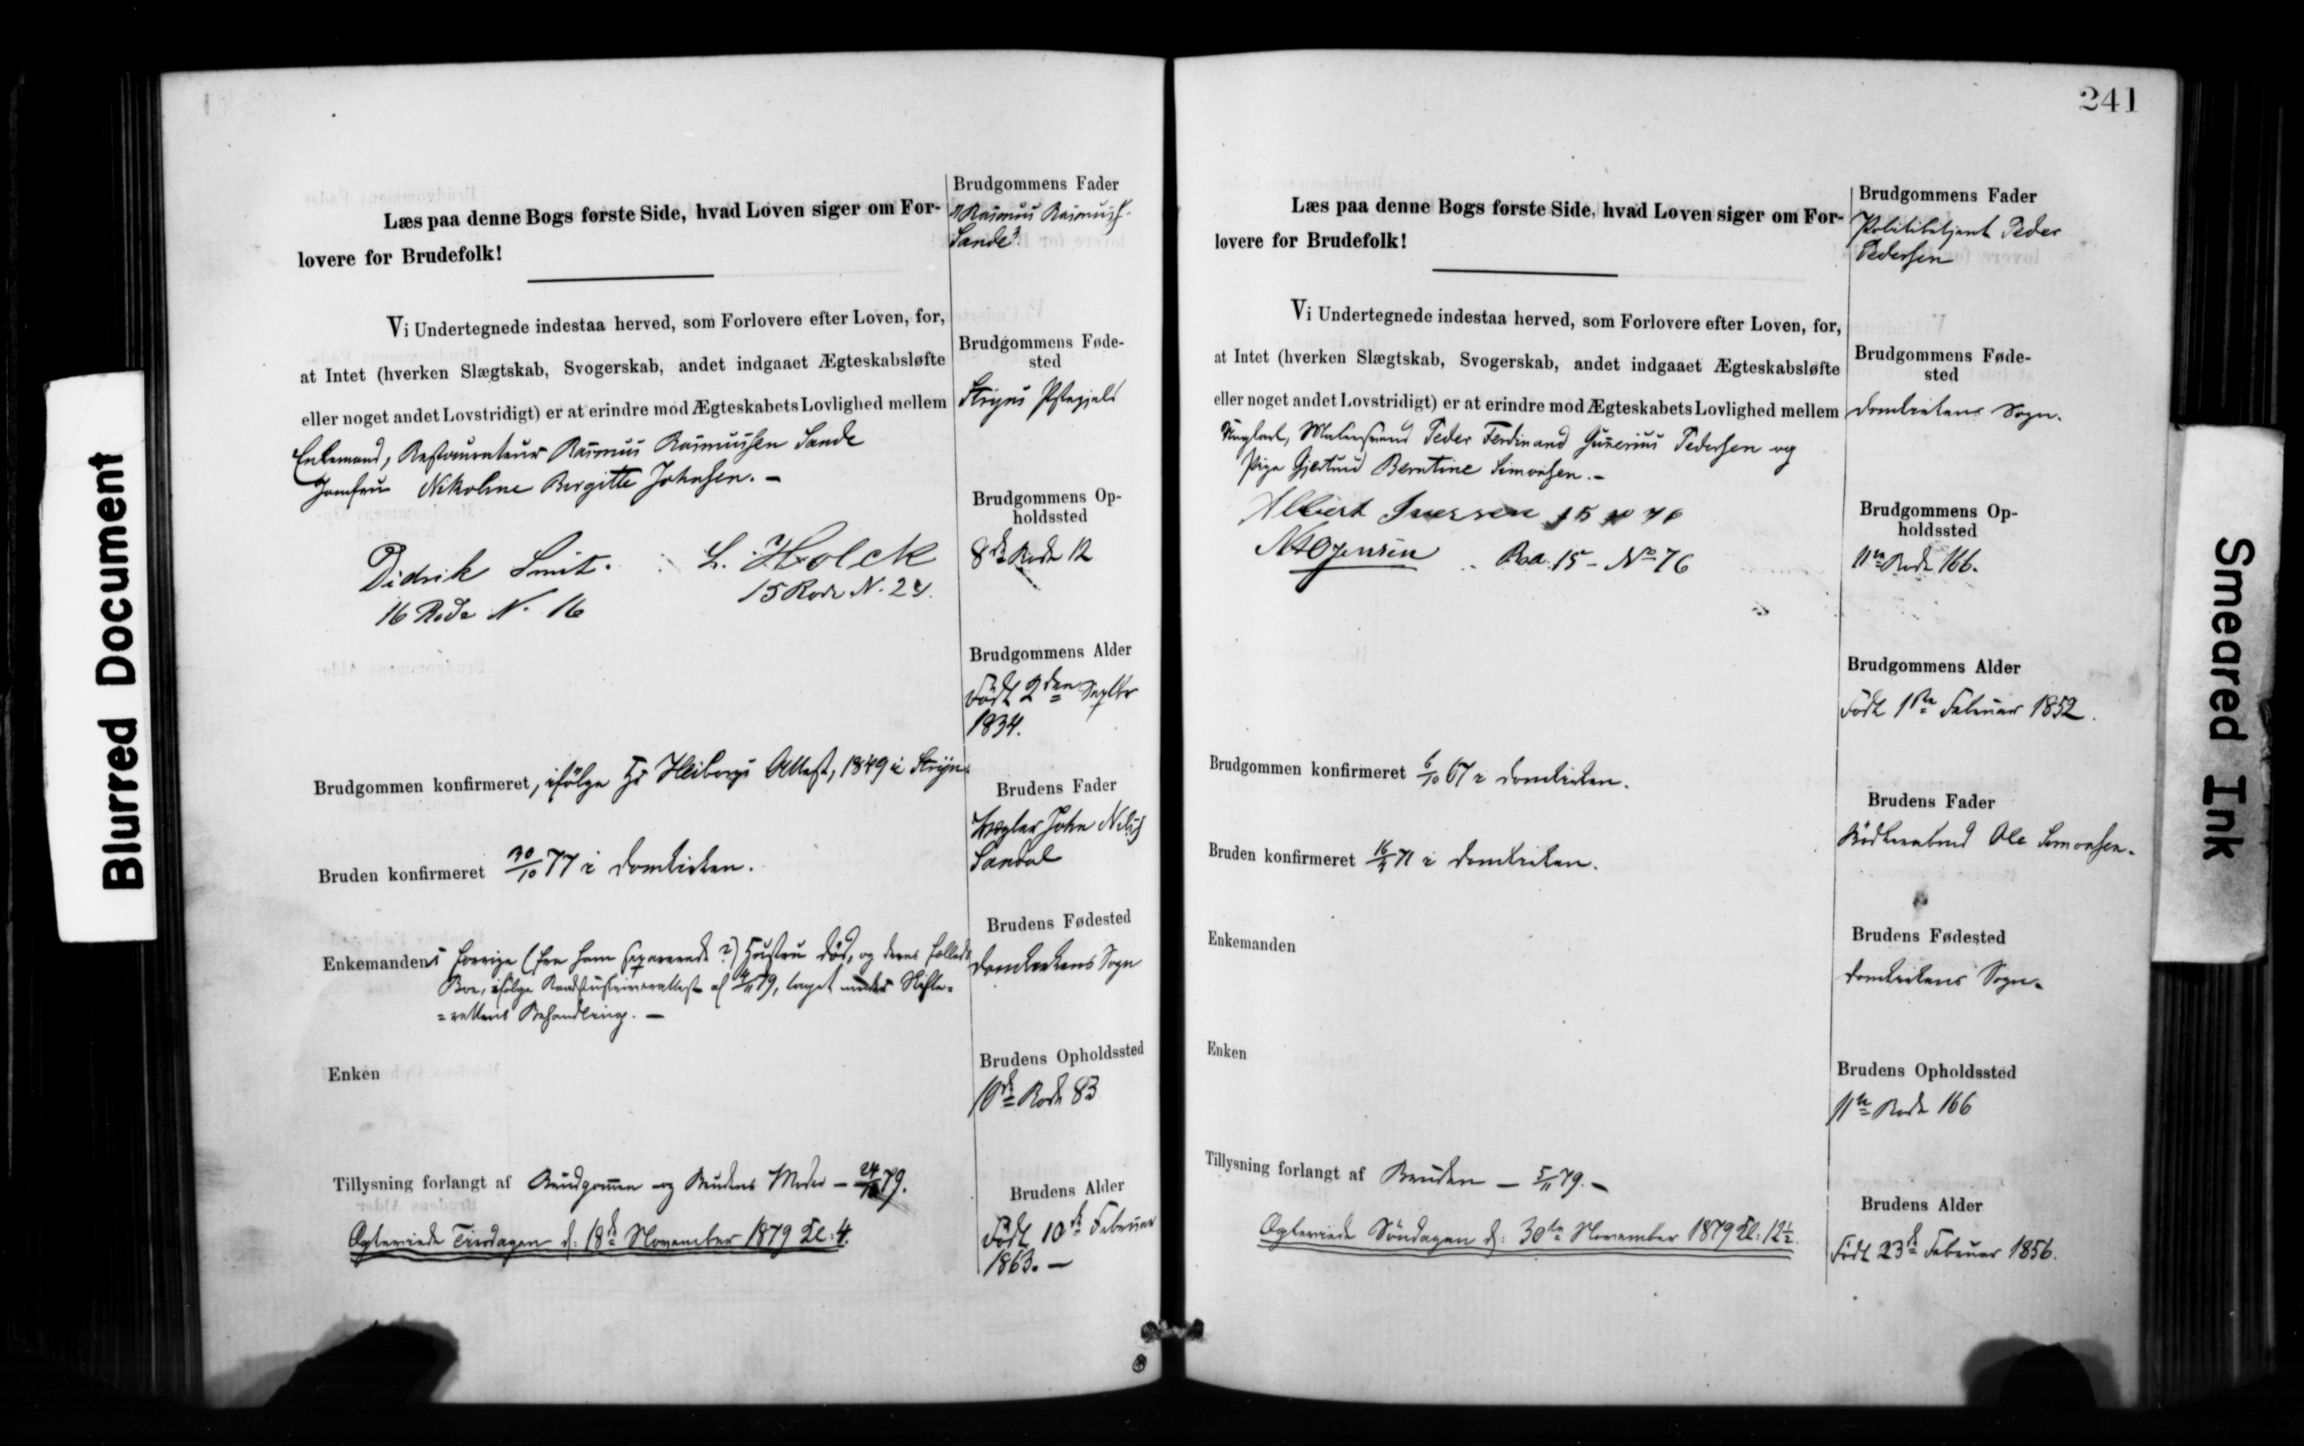 Blurred Document
Læs paa denne Bogs første Side, hvad Loven siger om For-
lovere for Brudefolk!
Vi Undertegnede indestaa herved, som Forlovere efter Loven, for,
at Intet (hverken Slægtskab, Svogerskab, andet indgaaet Ægteskabsløfte
eller noget andet Lovstridigt) er at erindre mod Ægteskabets Lovlighed mellem
Enkemand, Restaurateur Rasmus Rasmussen Sande
Jomfru Nikoline Birgitte Johnsen. -
Didrik Smit. L. Holck
16 Rode N. 16 15 Rode N. 24.
Brudgommen konfirmeret, ifølge Hr Heibergs Attest, 1849 i Stryn.
Bruden konfirmeret 30/10 77 i Domkirken.
Enkemandens forrige (fra ham separerede?) Hustru død, og deres fælleds
Boe, ifølge af 4/11 79, taget under Skifte=
=rettens Behandling. -
Enken
Tillysning forlangt af Brudgommen og Brudens Moder - 24/10 79.
Ægteviede Tirsdagen d: 18de November 1879 Kl: 4.
Brudgommens Fader
Rasmus Rasmuss.
Sande
Brudgommens Føde-
sted
Stryns Pstegjeld
Brudgommens Op-
holdssted
8de Rode 12
Brudgommens Alder
Født 2den Septbr
1834.
Brudens Fader
John Nils
Sandal
Brudens Fødested
Domkirkens Sogn
Brudens Opholdssted
10de Rode 83
Brudens Alder
Født 10de Februar
1863. -
241
Læs paa denne Bogs første Side, hvad Loven siger om For-
lovere for Brudefolk!
Vi Undertegnede indestaa herved, som Forlovere efter Loven, for,
at Intet (hverken Slægtskab, Svogerskab, andet indgaaet Ægteskabsløfte
eller noget andet Lovstridigt) er at erindre mod Ægteskabets Lovlighed mellem
Ungkarl, Malersvend Peder Ferdinand Gunerius Pedersen og
Pige Gjertrud Berntine Simonsen. -
Albert Iversen 15 76
Ro. 15 - No 76
Brudgommen konfirmeret 6/10 67 i Domkirken.
Bruden konfirmeret 16/4 71 i Domkirken.
Enkemanden
Enken
Tillysning forlangt af Bruden - 5/11 79. -
Ægteviede Søndagen d: 30te November 1879 Kl: 12½.
Brudgommens Fader
Politibetjent Peder
Pedersen
Brudgommens Føde-
sted
Domkirkens Sogn.
Brudgommens Op-
holdssted
11te Rode 166.
Brudgommens Alder
Født 1ste Februar 1852.
Brudens Fader
Bødkersvend Ole Simonsen.
Brudens Fødested
Domkirkens Sogn.
Brudens Opholdssted
11te Rode 166
Brudens Alder
Født 23de Februar 1856.
Smeared Ink